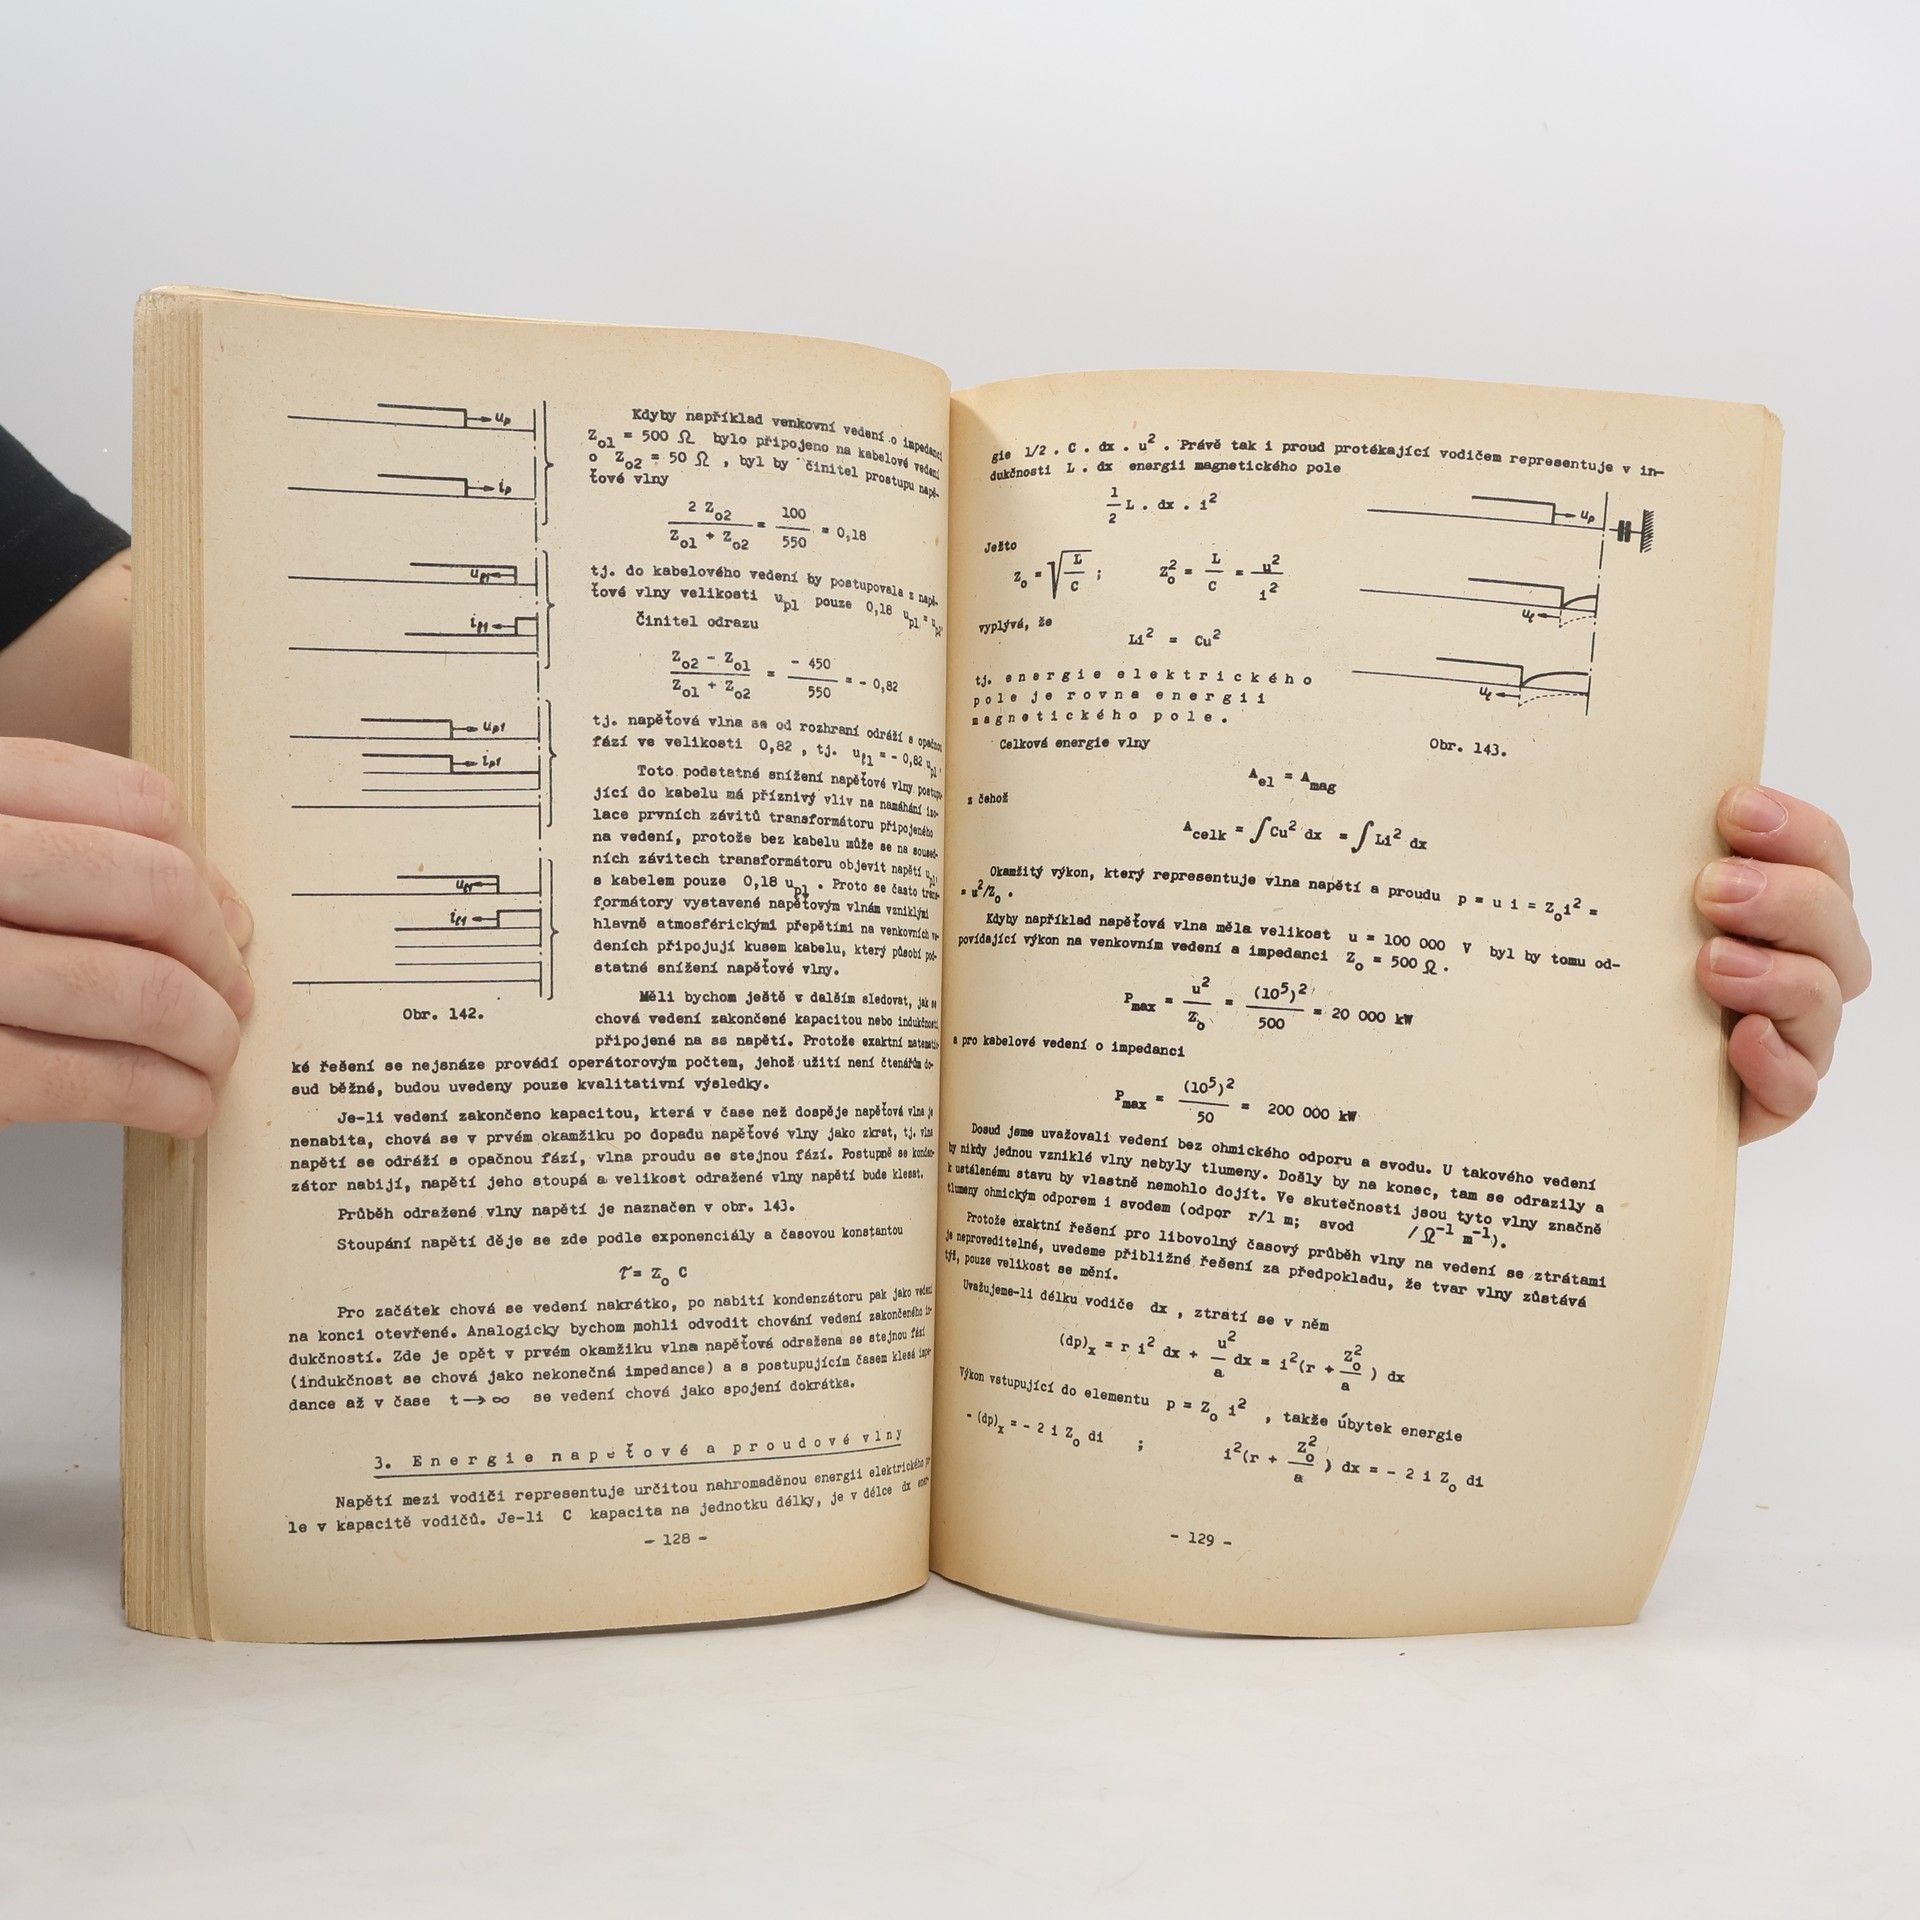 Kdyby například venkovní vedení o impedanci
Zo1 = 500 Ω bylo připojeno na kabelové vedení
o Zo2 = 50 Ω , byl by činitel prostupu napě-
ťové vlny
2 Zo2 / (Zo1 + Zo2) = 100 / 550 = 0,18
tj. do kabelového vedení by postupovala z napě-
ťové vlny velikosti up1 pouze 0,18 up1 = up2.
Činitel odrazu
(Zo2 - Zo1) / (Zo1 + Zo2) = - 450 / 550 = - 0,82
tj. napěťová vlna se od rozhraní odráží s opačnou
fází ve velikosti 0,82 , tj. uℓ1 = - 0,82 up1.
Toto podstatné snížení napěťové vlny postupu-
jící do kabelu má příznivý vliv na namáhání iso-
lace prvních závitů transformátoru připojeného
na vedení, protože bez kabelu může se na soused-
ních závitech transformátoru objevit napětí up1,
s kabelem pouze 0,18 up1 . Proto se často trans-
formátory vystavené napěťovým vlnám vzniklými
hlavně atmosférickými přepětími na venkovních ve-
deních připojují kusem kabelu, který působí pod-
statné snížení napěťové vlny.
up
ip
uℓ1
iℓ1
up1
ip1
uℓ1
iℓ1
Obr. 142.
Měli bychom ještě v dalším sledovat, jak se
chová vedení zakončené kapacitou nebo indukčností
připojené na ss napětí. Protože exaktní matematic-
ké řešení se nejsnáze provádí operátorovým počtem, jehož užití není čtenářům do-
sud běžné, budou uvedeny pouze kvalitativní výsledky.
Je-li vedení zakončeno kapacitou, která v čase než dospěje napěťová vlna je
nenabita, chová se v prvém okamžiku po dopadu napěťové vlny jako zkrat, tj. vlna
napětí se odráží s opačnou fází, vlna proudu se stejnou fází. Postupně se konden-
zátor nabijí, napětí jeho stoupá a velikost odražené vlny napětí bude klesat.
Průběh odražené vlny napětí je naznačen v obr. 143.
Stoupání napětí děje se zde podle exponenciály a časovou konstantou
τ = Zo C
Pro začátek chová se vedení nakrátko, po nabití kondenzátoru pak jako vedení
na konci otevřené. Analogicky bychom mohli odvodit chování vedení zakončeného in-
dukčností. Zde je opět v prvém okamžiku vlna napěťová odražena se stejnou fází
(indukčnost se chová jako nekonečná impedance) a s postupujícím časem klesá impe-
dance až v čase t → ∞ se vedení chová jako spojení dokrátka.
3. Energie napěťové a proudové vlny
Napětí mezi vodiči representuje určitou nahromaděnou energii elektrického po-
le v kapacitě vodičů. Je-li C kapacita na jednotku délky, je v délce dx ener-
- 128 -
gie 1/2 . C . dx . u² . Právě tak i proud protékající vodičem representuje v in-
dukčnosti L . dx energii magnetického pole
1/2 L . dx . i²
Ježto
Zo = √(L/C) ; Zo² = L/C = u²/i²
vyplývá, že
Li² = Cu²
tj. energie elektrického
pole je rovna energii
magnetického pole.
up
uℓ
uℓ
Obr. 143.
Celková energie vlny
Ael = Amag
z čehož
Acelk = ∫Cu² dx = ∫Li² dx
Okamžitý výkon, který representuje vlna napětí a proudu p = u i = Zoi² =
= u²/Zo .
Kdyby například napěťová vlna měla velikost u = 100 000 V byl by tomu od-
povídající výkon na venkovním vedení a impedanci Zo = 500 Ω .
Pmax = u²/Zo = (10⁵)²/500 = 20 000 kW
a pro kabelové vedení o impedanci
Pmax = (10⁵)²/50 = 200 000 kW
Dosud jsme uvažovali vedení bez ohmického odporu a svodu. U takového vedení
by nikdy jednou vzniklé vlny nebyly tlumeny. Došly by na konec, tam se odrazily a
k ustálenému stavu by vlastně nemohlo dojít. Ve skutečnosti jsou tyto vlny značně
tlumeny ohmickým odporem i svodem (odpor r/1 m; svod /Ω⁻¹ m⁻¹).
Protože exaktní řešení pro libovolný časový průběh vlny na vedení se ztrátami
je neproveditelné, uvedeme přibližné řešení za předpokladu, že tvar vlny zůstává
týž, pouze velikost se mění.
Uvažujeme-li délku vodiče dx , ztratí se v něm
(dp)x = r i² dx + u²/a dx = i²(r + Zo²/a ) dx
Výkon vstupující do elementu p = Zo i² , takže úbytek energie
- (dp)x = - 2 i Zo di ; i²(r + Zo²/a ) dx = - 2 i Zo di
- 129 -